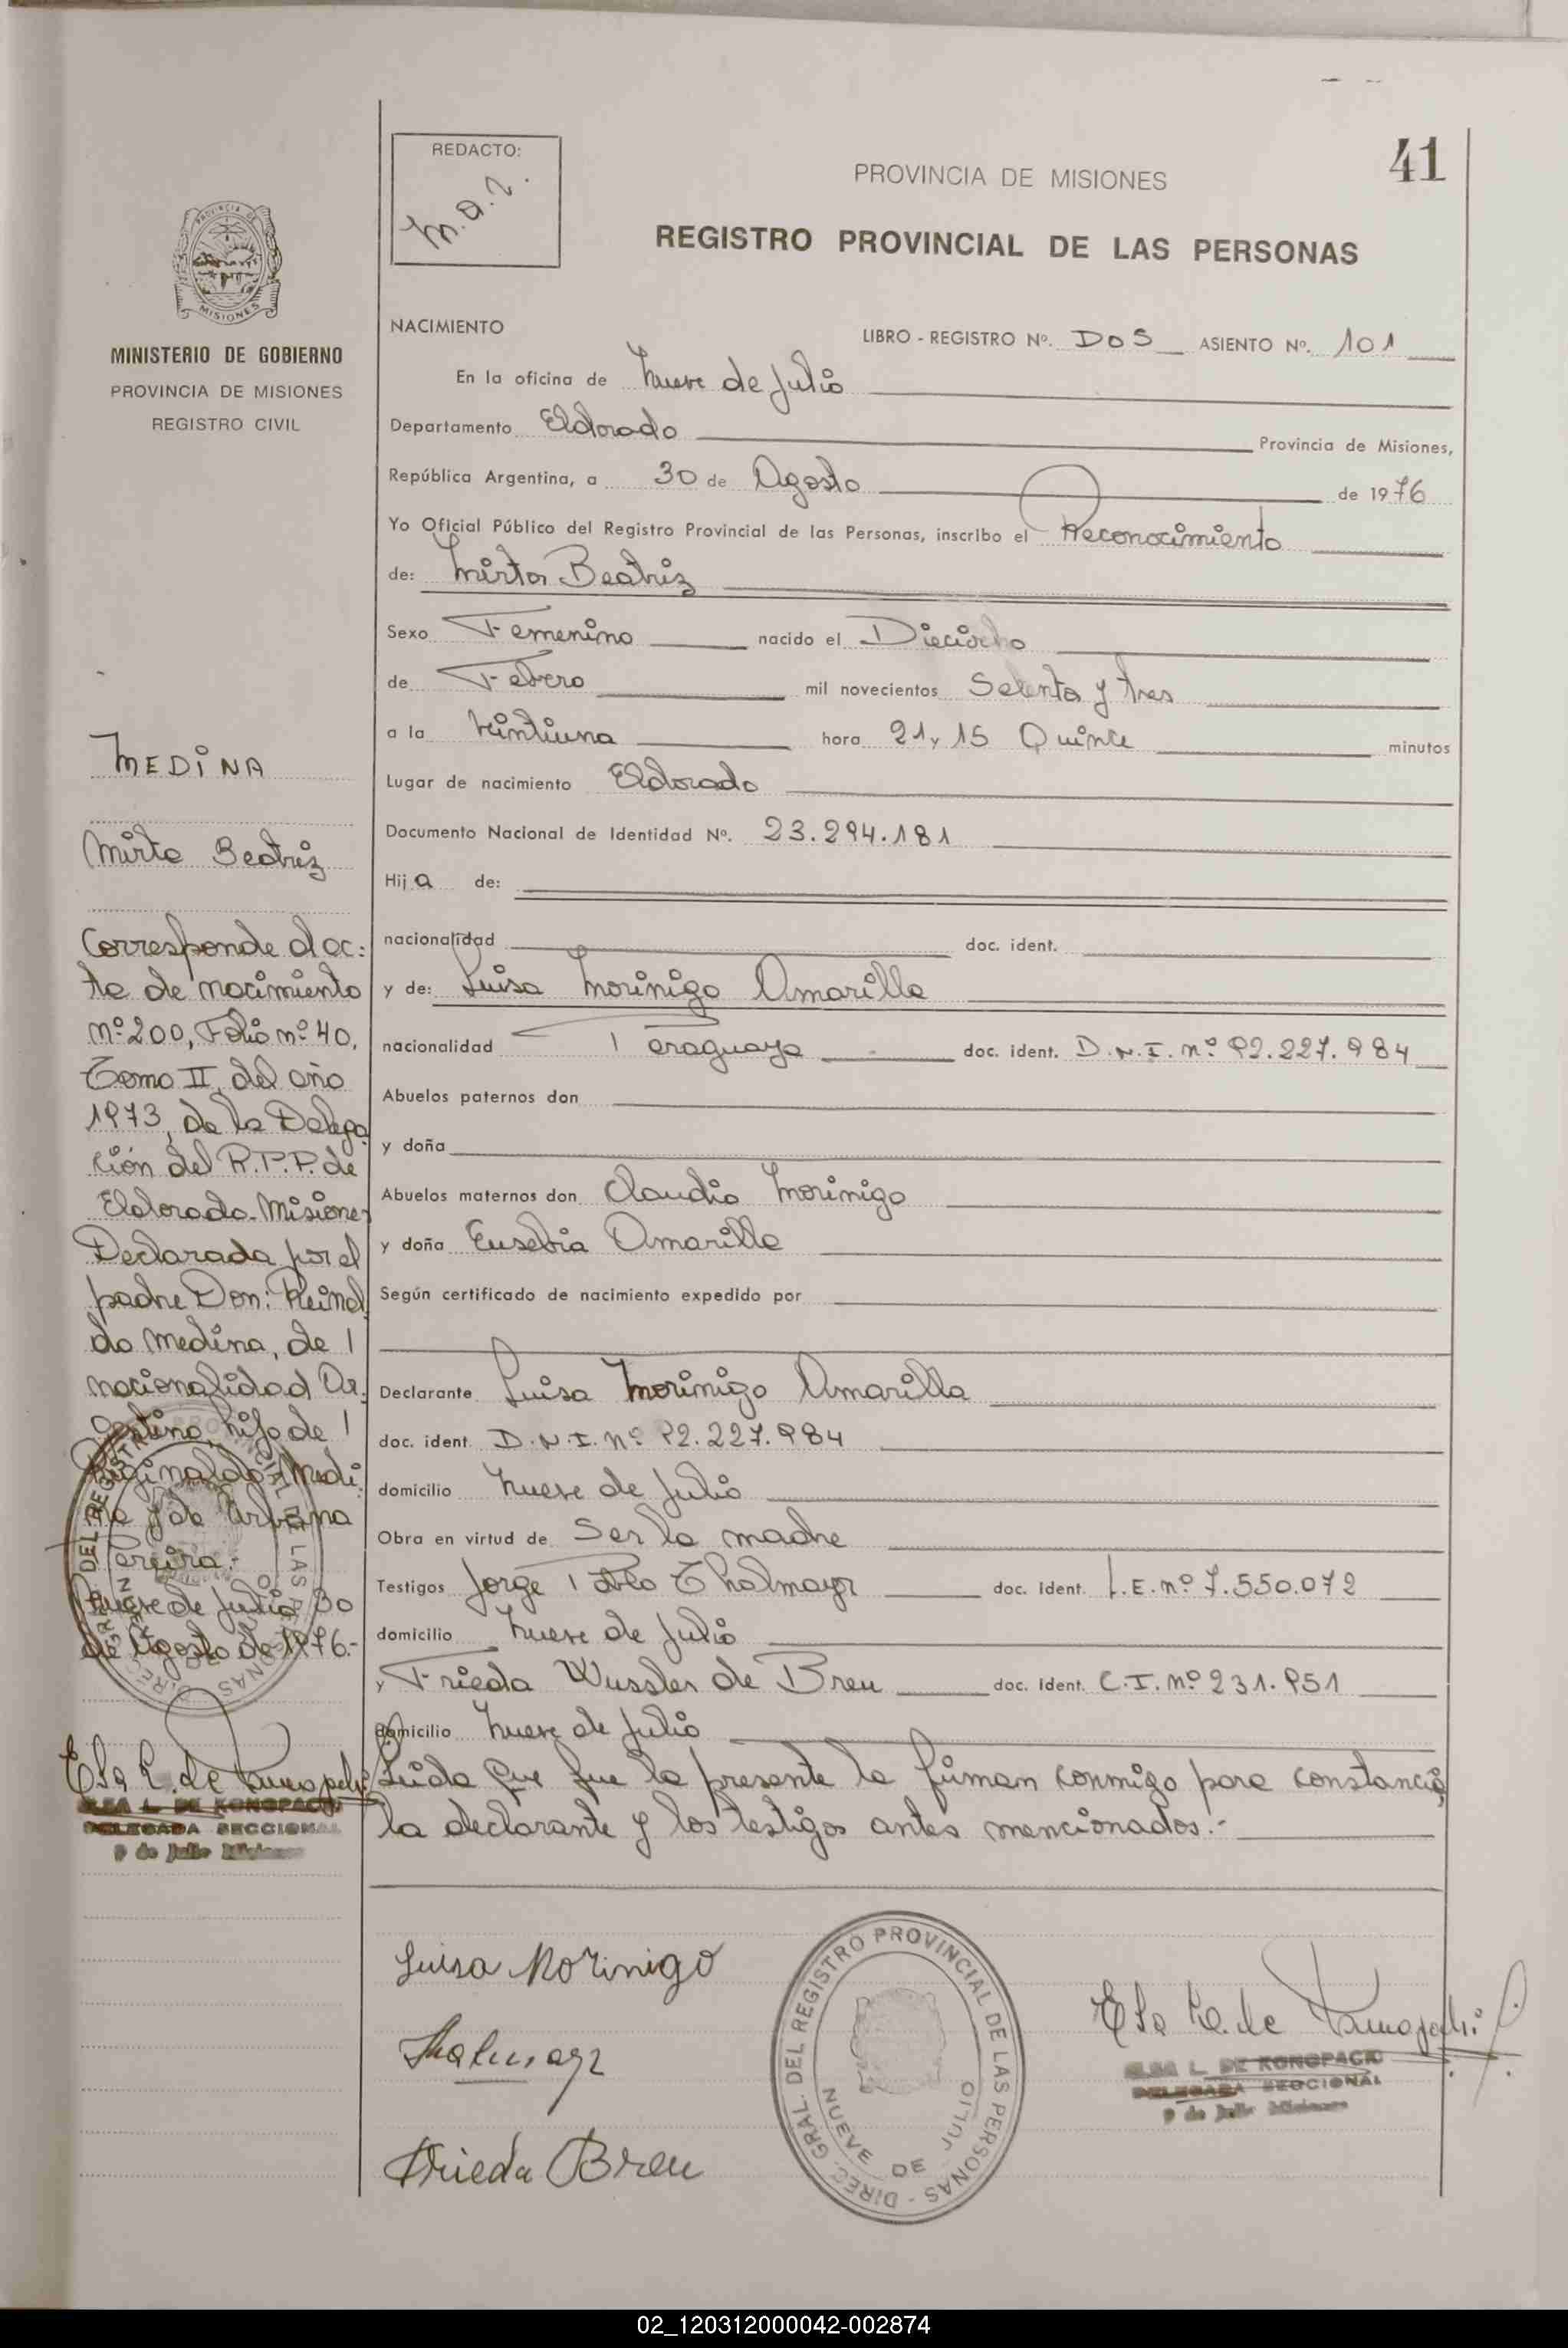 41
REDACTO:
PROVINCIA DE MISIONES
REGISTRO PROVINCIAL DE LAS PERSONAS
PROVINCIA DE
MISIONES
MINISTERIO DE GOBIERNO
PROVINCIA DE MISIONES
REGISTRO CIVIL
MEDINA
Mirta Beatriz
Corresponde al ac:
ta de nacimiento
nº 200, Folio nº 40,
Tomo II, del año
1973, de la Delega
ción del R.P.P. de
Eldorado-Misiones
Declarada por el
padre Don: Reinal
do Medina, de
nacionalidad Ar.
gentino, hijo de
Reginaldo Medi
na y de Urbana
Pereira.-
Nueve de Julio, 30
de Agosto de 1976.-
ELSA L. DE KONOPACKI
DELEGADA SECCIONAL
9 de Julio Misiones
NACIMIENTO LIBRO - REGISTRO Nº. DOS ASIENTO Nº. 101
En la oficina de Nueve de Julio
Departamento Eldorado Provincia de Misiones,
República Argentina, a 30 de Agosto de 1976
Yo Oficial Público del Registro Provincial de las Personas, inscribo el Reconocimiento
de: Mirta Beatriz
Sexo Femenino nacido el Dieciocho
de Febrero mil novecientos Setenta y tres
a la Veintiuna hora 21 y 15 Quince minutos
Lugar de nacimiento Eldorado
Documento Nacional de Identidad Nº. 23.294.181
Hija de:
nacionalidad doc. ident.
y de: Luisa Morinigo Amarilla
nacionalidad Paraguaya doc. ident. D.N.I. nº 92.227.984
Abuelos paternos don
y doña
Abuelos maternos don Claudio Morinigo
y doña Eusebia Amarilla
Según certificado de nacimiento expedido por
Declarante Luisa Morinigo Amarilla
doc. ident. D.N.I. nº 92.227.984
domicilio Nueve de Julio
Obra en virtud de Ser la madre
Testigos Jorge Pablo Thalmayr doc. Ident. L.E. nº 7.550.072
domicilio Nueve de Julio
y Frieda Wussler de Breu doc. Ident. C.I. nº 231.951
domicilio Nueve de Julio
Leida que fue la presente la firman conmigo para constancia,
la declarante y los testigos antes mencionados.-
Luisa Morinigo
Thalmayr
Frieda Breu
DIREC. GRAL. DEL REGISTRO PROVINCIAL DE LAS PERSONAS
NUEVE DE JULIO
ELSA L. DE KONOPACKI
DELEGADA SECCIONAL
9 de Julio Misiones
02_120312000042-002874